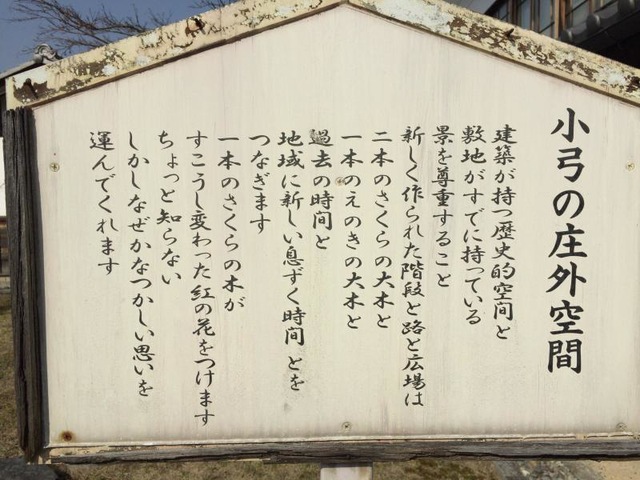 小弓の庄外空間
建築が持つ歴史的空間と
敷地がすでに持っている
景を尊重すること
新しく作られた階段と路と広場は
二本のさくらの大木と
一本のえのきの大木と
過去の時間と
地域に新しい息ずく時間とを
つなぎます
一本のさくらの木が
すこうし変わった紅の花をつけます
ちょっと知らない
しかしなぜかなつかしい思いを
運んでくれます